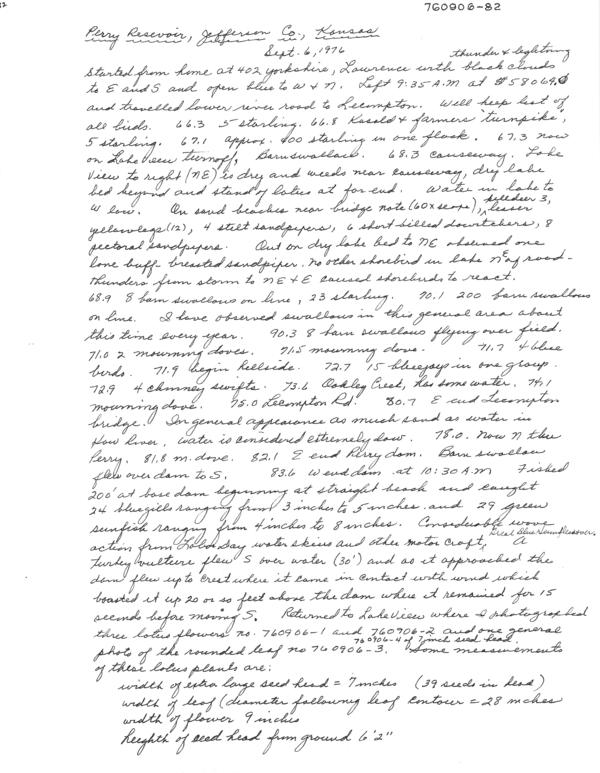 760906-82
Perry Resevoir, Jefferson Co., Kansas
Sept. 6, 1976
thunder & lightning
Started from home at 402 yorkshire, Lawrence with black clouds
to E and S and open blue to W & N. Left 9:35 A.M at #58069.0
and travelled lower river road to Lecompton. Will keep list of
all birds. 66.3 5 starling. 66.8 Kasold & farmers turnpike,
5 starling. 67.1 approx. 400 starling in one flock. 67.3 now
on Lakeview turnoff, Barnswallow. 68.3 causeway. Lake
View to right (NE) is dry and weeds near causeway, dry lake
bed beyond and stand of lotus at far end. Water in lake to
W low. On sand beaches near bridge note (60x scope), killdeer 3, lesser
yellowlegs (12), 4 stilt sandpipers, 6 short billed dowitchers, 8
pectoral sandpipers. Out on dry lake bed to NE observed one
lone buff breasted sandpiper. No other shorebird in lake NE of road-
thunders from storm to NE & E caused shorebirds to react.
68.9 8 barn swallows on line, 23 starling. 70.1 200 barn swallows
on line. I have observed swallows in this general area about
this time every year. 90.3 8 barn swallows flying over field.
71.0 2 mourning doves. 71.5 mourning dove. 71.7 4 blue
birds. 71.9 begin hillside. 72.7 15 bluejays in one group.
72.9 4 chimney swifts. 73.6 Oakley Creek, has some water. 74.1
mourning dove. 75.0 Lecompton Rd. 80.7 E end Lecompton
bridge. In general appearance as much sand as water in
Kaw River, water is considered extremely low. 78.0. Now N thru
Perry. 81.8 m. dove. 82.1 E end Perry dam. Barn swallow
flew over dam to S. 83.6 W end dam at 10:30 A.M Fished
200' at base dam beginning at straight beach and caught
24 bluegills ranging from 3 inches to 5 inches and 29 green
sunfish ranging from 4 inches to 8 inches. Considerable wave
action from Labor Day water skiers and other motor craft. Great Blue Heron flies over. A
turkey vulture flew S over water (30') and as it approached the
dam flew up to crest where it came in contact with wind which
boasted it up 20 or so feet above the dam where it remained for 15
seconds before moving S. Returned to Lakeview where I photographed
three lotus flowers no. 760906-1 and 760906-2 and one general
photo of the rounded leaf no 760906-3. 760906-4 of 7 inch seed head. Some measurements
of these lotus plants are:
width of extra large seed head = 7 inches (39 seeds in head)
width of leaf (diameter following leaf contour = 28 inches
width of flower 9 inches
heighth of seed head from ground 6'2"